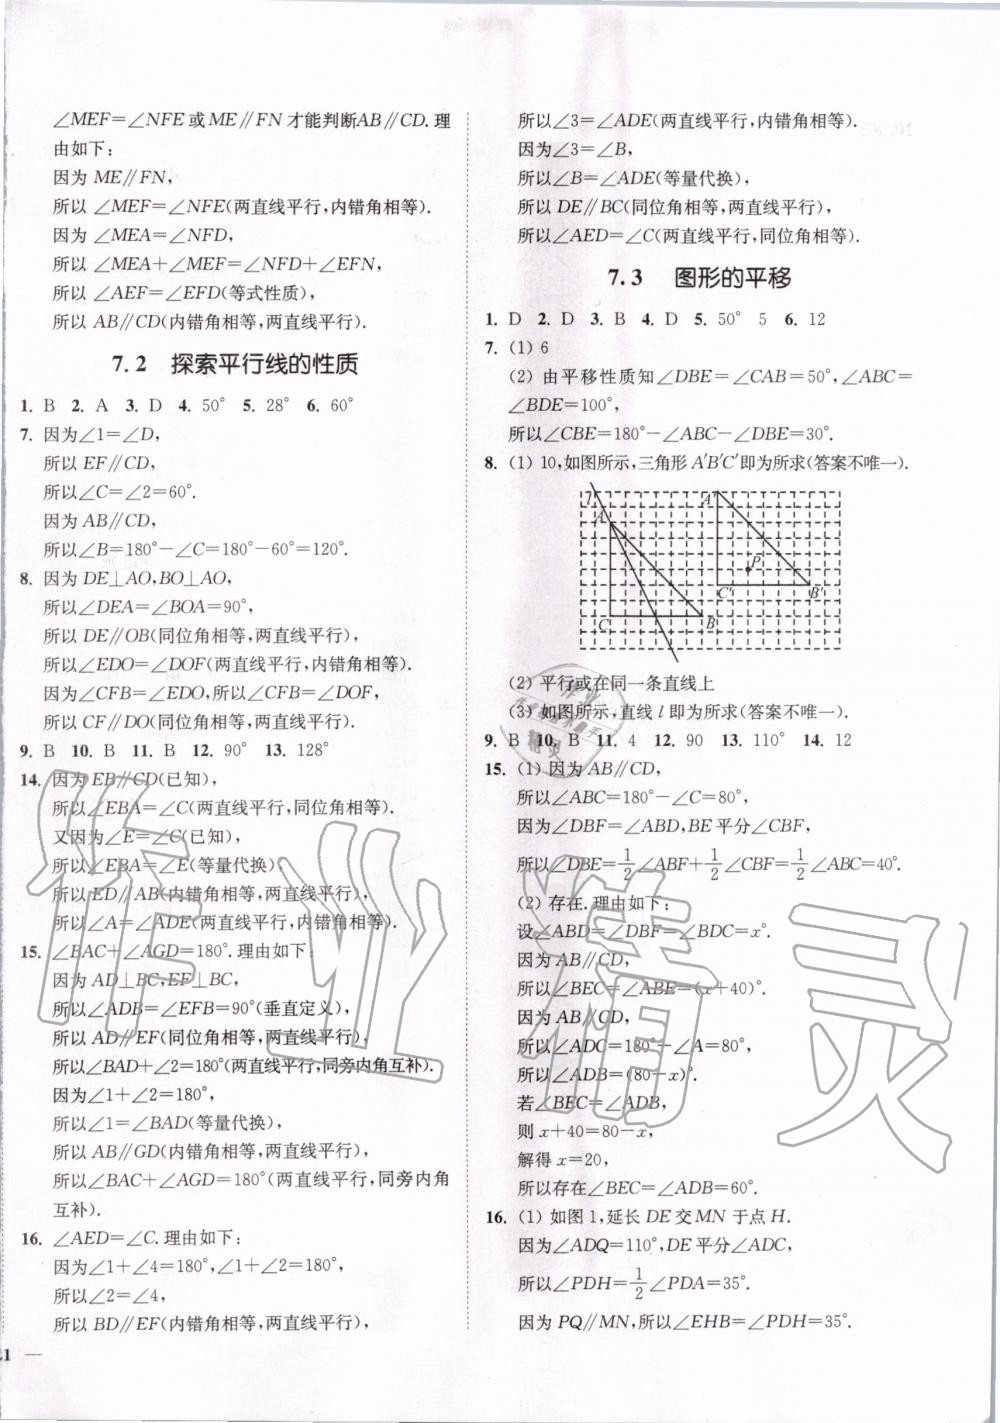 ∠MEF=∠NFE或ME∥FN才能判断AB∥CD.理
由如下:
因为ME∥FN,
所以∠MEF=∠NFE(两直线平行,内错角相等).
因为∠MEA=∠NFD,
所以∠MEA+∠MEF=∠NFD+∠EFN,
所以∠AEF=∠EFD(等式性质),
所以AB∥CD(内错角相等,两直线平行).
7.2 探索平行线的性质
1. B 2. A 3. D 4. 50° 5. 28° 6. 60°
7. 因为∠1=∠D,
所以EF∥CD,
所以∠C=∠2=60°.
因为AB∥CD,
所以∠B=180°-∠C=180°-60°=120°.
8. 因为DE⊥AO,BO⊥AO,
所以∠DEA=∠BOA=90°,
所以DE∥OB(同位角相等,两直线平行),
所以∠EDO=∠DOF(两直线平行,内错角相等).
因为∠CFB=∠EDO,所以∠CFB=∠DOF,
所以CF∥DO(同位角相等,两直线平行).
9. B 10. B 11. B 12. 90° 13. 128°
14. 因为EB∥CD(已知),
所以∠EBA=∠C(两直线平行,同位角相等).
又因为∠E=∠C(已知),
所以∠EBA=∠E(等量代换),
所以ED∥AB(内错角相等,两直线平行),
所以∠A=∠ADE(两直线平行,内错角相等).
15. ∠BAC+∠AGD=180°.理由如下:
因为AD⊥BC,EF⊥BC,
所以∠ADB=∠EFB=90°(垂直定义),
所以AD∥EF(同位角相等,两直线平行),
所以∠BAD+∠2=180°(两直线平行,同旁内角互补).
因为∠1+∠2=180°,
所以∠1=∠BAD(等量代换),
所以AB∥GD(内错角相等,两直线平行),
所以∠BAC+∠AGD=180°(两直线平行,同旁内角
互补).
16. ∠AED=∠C.理由如下:
因为∠1+∠4=180°,∠1+∠2=180°,
所以∠2=∠4,
所以BD∥EF(内错角相等,两直线平行),
所以∠3=∠ADE(两直线平行,内错角相等).
因为∠3=∠B,
所以∠B=∠ADE(等量代换),
所以DE∥BC(同位角相等,两直线平行),
所以∠AED=∠C(两直线平行,同位角相等).
7.3 图形的平移
1. D 2. D 3. B 4. D 5. 50° 5 6. 12
7. (1) 6
(2) 由平移性质知∠DBE=∠CAB=50°,∠ABC=
∠BDE=100°,
所以∠CBE=180°-∠ABC-∠DBE=30°.
8. (1) 10,如图所示,三角形A′B′C′即为所求(答案不唯一).
l A A′ P C′ B′ C B
(2) 平行或在同一条直线上
(3) 如图所示,直线l即为所求(答案不唯一).
9. B 10. B 11. 4 12. 90 13. 110° 14. 12
15. (1) 因为AB∥CD,
所以∠ABC=180°-∠C=80°,
因为∠DBF=∠ABD,BE平分∠CBF,
所以∠DBE=1/2∠ABF+1/2∠CBF=1/2∠ABC=40°.
(2) 存在.理由如下:
设∠ABD=∠DBF=∠BDC=x°.
因为AB∥CD,
所以∠BEC=∠ABE=(x+40)°.
因为AB∥CD,
所以∠ADC=180°-∠A=80°,
所以∠ADB=(80-x)°.
若∠BEC=∠ADB,
则x+40=80-x,
解得x=20,
所以存在∠BEC=∠ADB=60°.
16. (1) 如图1,延长DE交MN于点H.
因为∠ADQ=110°,DE平分∠ADC,
所以∠PDH=1/2∠PDA=35°.
因为PQ∥MN,所以∠EHB=∠PDH=35°.
21 —
作业精灵